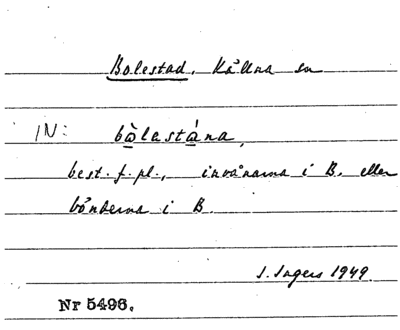 Bolestad, Kållna sn
IN: bòlastána,
best. f. pl., invånarna i B. eller
bönderna i B.
I. Ingers 1949.
Nr 5496.